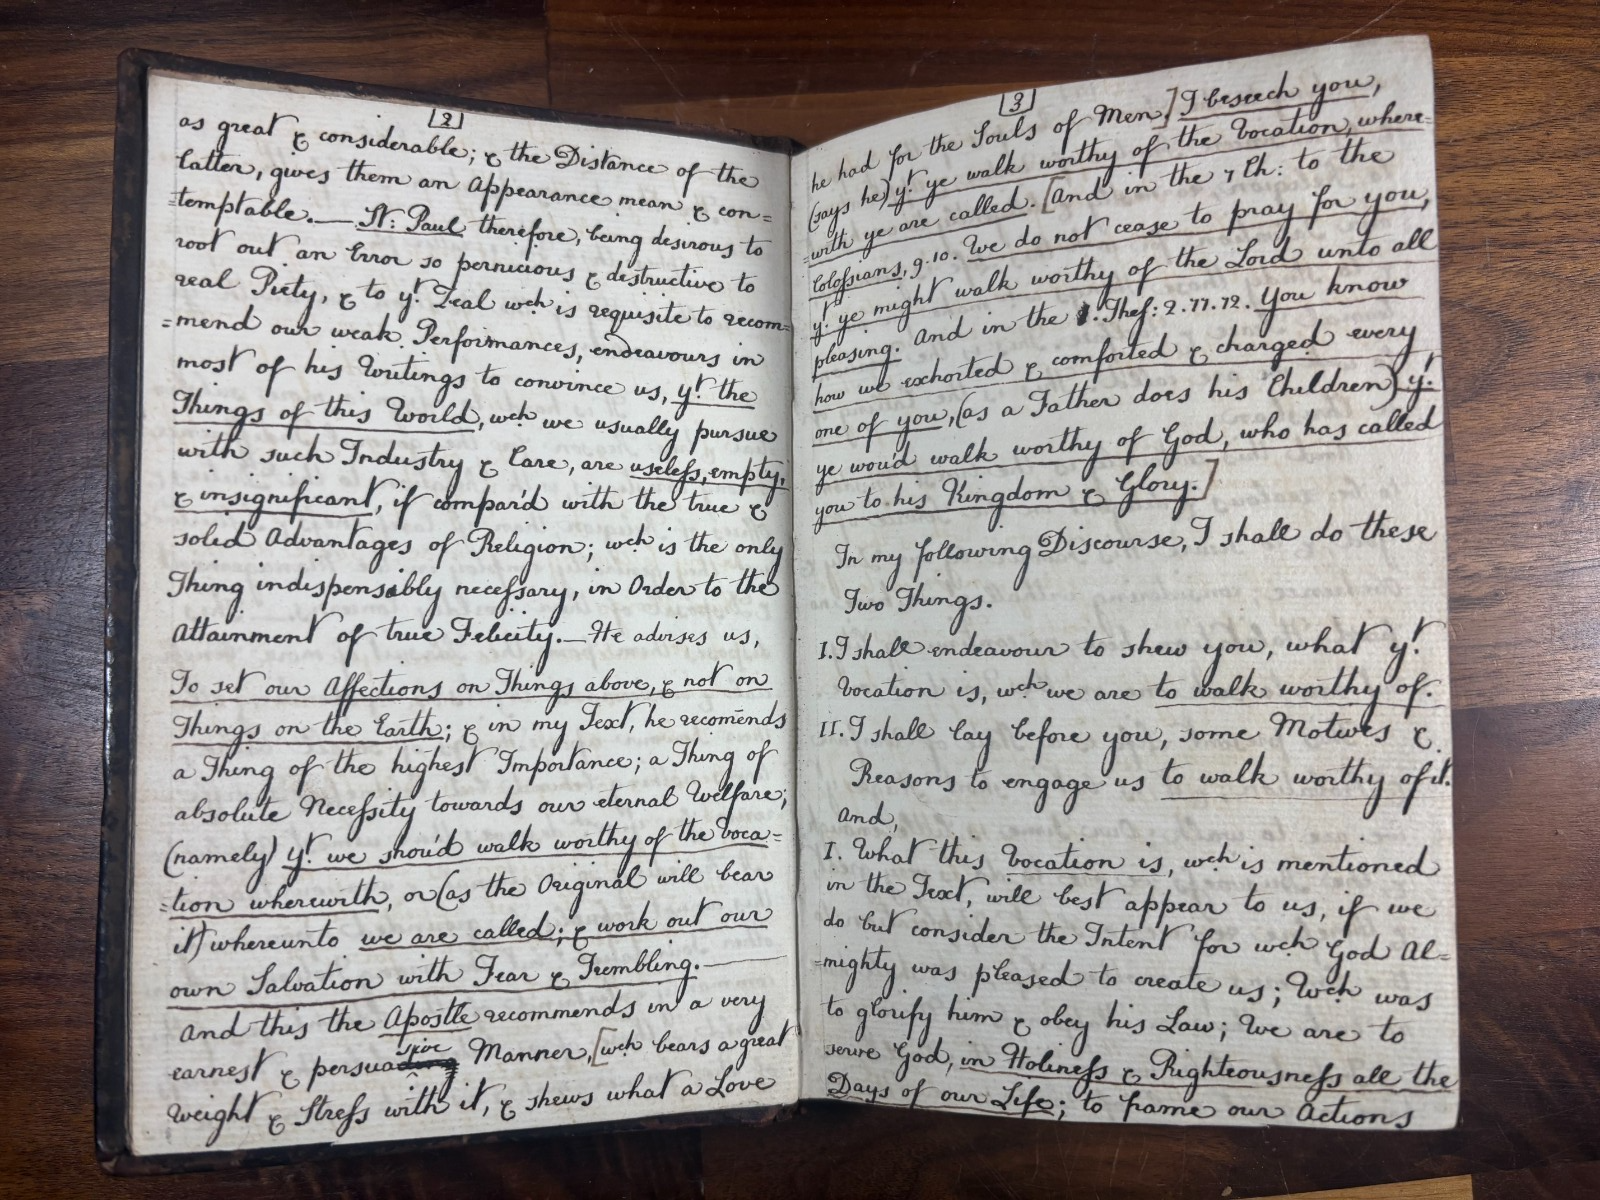 2
as great & considerable; & the Distance of the
latter, gives them an Appearance mean & con=
=temptable.— St: Paul therefore, being desirous to
root out an Error so pernicious & destructive to
real Piety, & to yt. Zeal wch is requisite to recom=
=mend our weak Performances, endeavours in
most of his Writings to convince us, yt. the
Things of this World, wch we usually pursue
with such Industry & Care, are useless, empty,
& insignificant, if compar'd with the true &
solid Advantages of Religion; wch is the only
Thing indispensably necessary, in Order to the
Attainment of true Felicity.— He advises us,
To set our Affections on Things above, & not on
Things on the Earth; & in my Text, he recomends
a Thing of the highest Importance; a Thing of
absolute Necessity towards our eternal Welfare;
(namely) yt. we shou'd walk worthy of the Voca=
=tion wherewith, or (as the Original will bear
it) whereunto we are called; & work out our
own Salvation with Fear & Trembling.—
And this the Apostle recommends in a very
earnest & persuasive Manner, [wch bears a great
Weight & Stress with it, & shews what a Love
3
he had for the Souls of Men.] I beseech you,
(says he) yt. ye walk worthy of the Vocation, where=
=with ye are called. [And in the 1 Ch: to the
Colossians, 9.10. We do not cease to pray for you,
yt. ye might walk worthy of the Lord unto all
pleasing. And in the 1. Thess: 2.11.12. You know
how we exhorted & comforted & charged every
one of you, (as a Father does his Children) yt.
ye wou'd walk worthy of God, who has called
you to his Kingdom & Glory.]
In my following Discourse, I shall do these
Two Things.
I. I shall endeavour to shew you, what yt.
Vocation is, wch we are to walk worthy of.
II. I shall lay before you, some Motives &
Reasons to engage us to walk worthy of it.
And,
I. What this Vocation is, wch is mentioned
in the Text, will best appear to us, if we
do but consider the Intent for wch God Al=
=mighty was pleased to create us; Wch was
to glorify him & obey his Law; We are to
serve God, in Holiness & Righteousness all the
Days of our Life; to frame our Actions